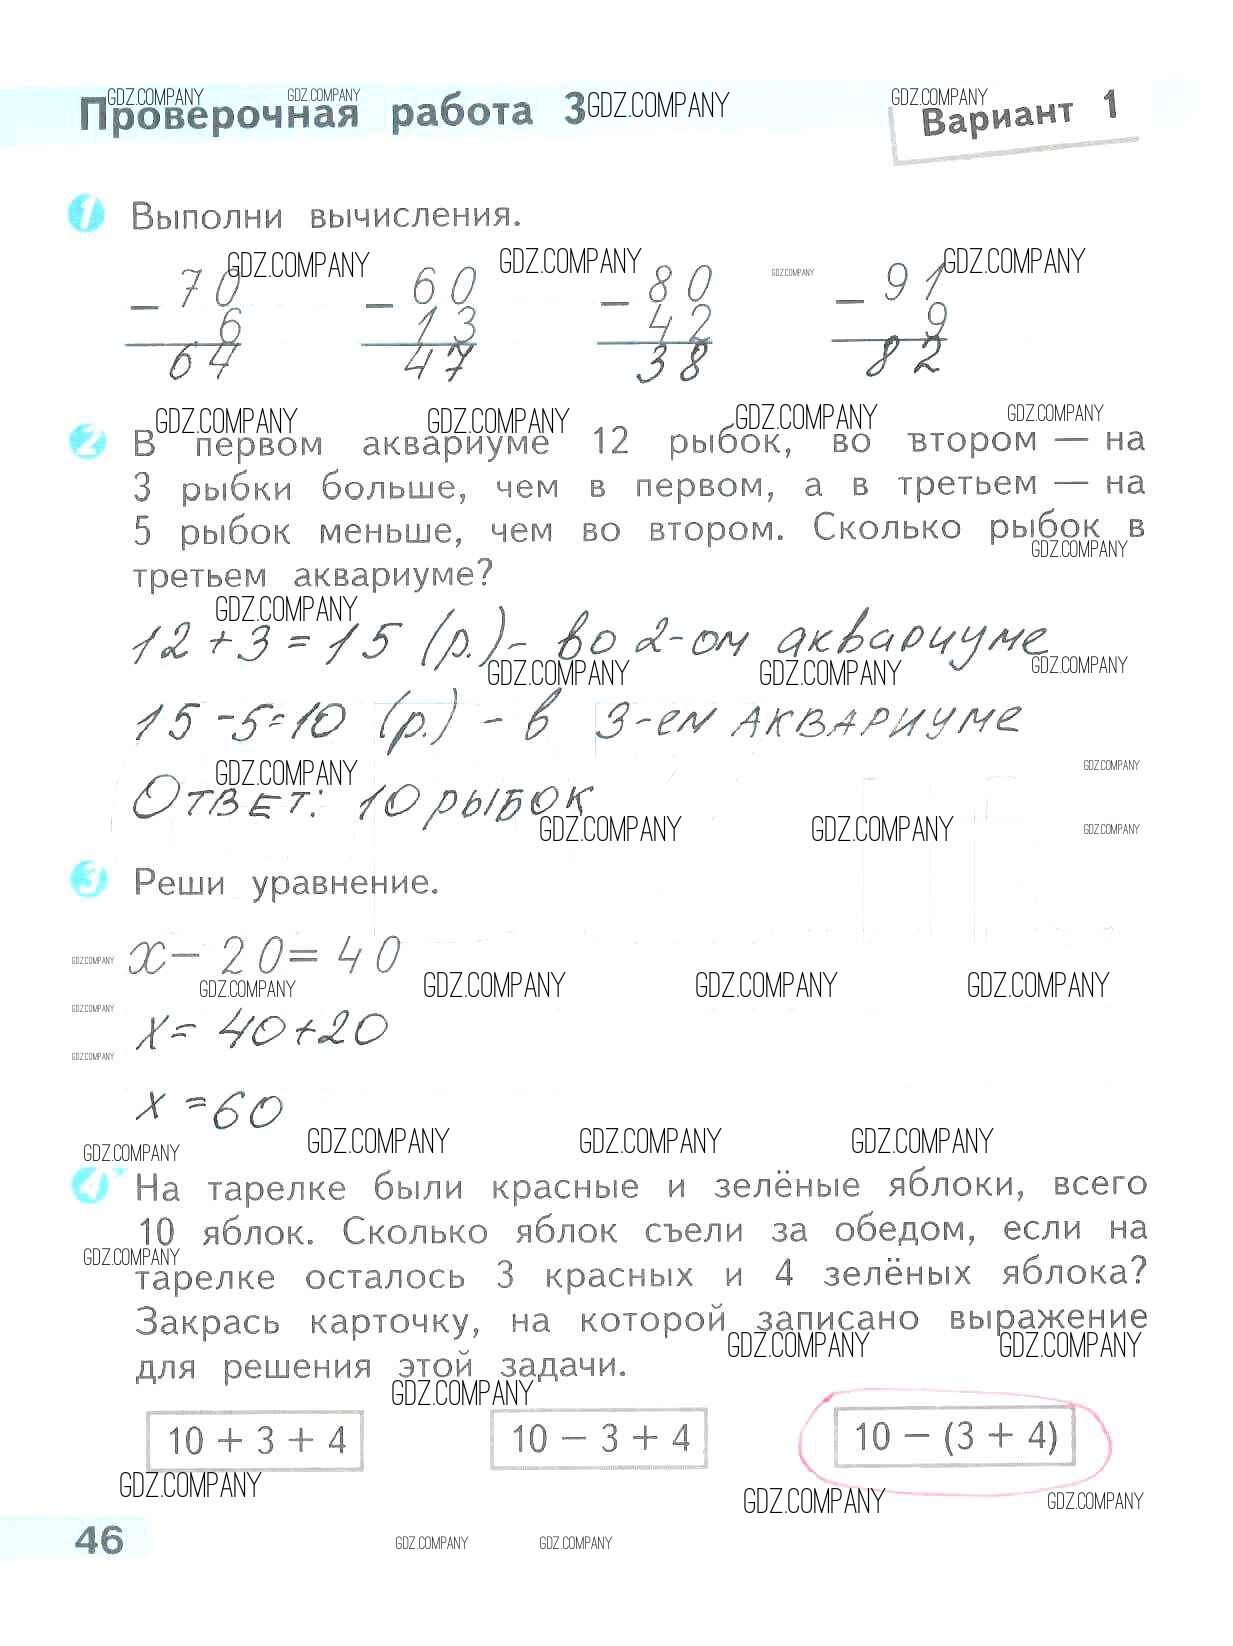 GDZ.COMPANY GDZ.COMPANY GDZ.COMPANY GDZ.COMPANY
Проверочная работа 3
Вариант 1
1 Выполни вычисления.
GDZ.COMPANY GDZ.COMPANY GDZ.COMPANY GDZ.COMPANY
− 70 − 60 − 80 − 91
6 13 42 9
64 47 38 82
GDZ.COMPANY GDZ.COMPANY GDZ.COMPANY GDZ.COMPANY
2 В первом аквариуме 12 рыбок, во втором — на
3 рыбки больше, чем в первом, а в третьем — на
5 рыбок меньше, чем во втором. Сколько рыбок в
GDZ.COMPANY
третьем аквариуме?
GDZ.COMPANY
12 + 3 = 15 (р.) - во 2-ом аквариуме
GDZ.COMPANY GDZ.COMPANY GDZ.COMPANY
15 - 5 = 10 (р.) - в 3-ем аквариуме
GDZ.COMPANY GDZ.COMPANY
Ответ: 10 рыбок
GDZ.COMPANY GDZ.COMPANY GDZ.COMPANY
3 Реши уравнение.
x − 20 = 40
GDZ.COMPANY
GDZ.COMPANY GDZ.COMPANY GDZ.COMPANY GDZ.COMPANY
GDZ.COMPANY
x = 40 + 20
GDZ.COMPANY
x = 60
GDZ.COMPANY GDZ.COMPANY GDZ.COMPANY GDZ.COMPANY
4* На тарелке были красные и зелёные яблоки, всего
10 яблок. Сколько яблок съели за обедом, если на
GDZ.COMPANY
тарелке осталось 3 красных и 4 зелёных яблока?
Закрась карточку, на которой записано выражение
GDZ.COMPANY GDZ.COMPANY
для решения этой задачи.
GDZ.COMPANY
10 + 3 + 4 10 − 3 + 4 10 − (3 + 4)
GDZ.COMPANY GDZ.COMPANY GDZ.COMPANY
46
GDZ.COMPANY GDZ.COMPANY